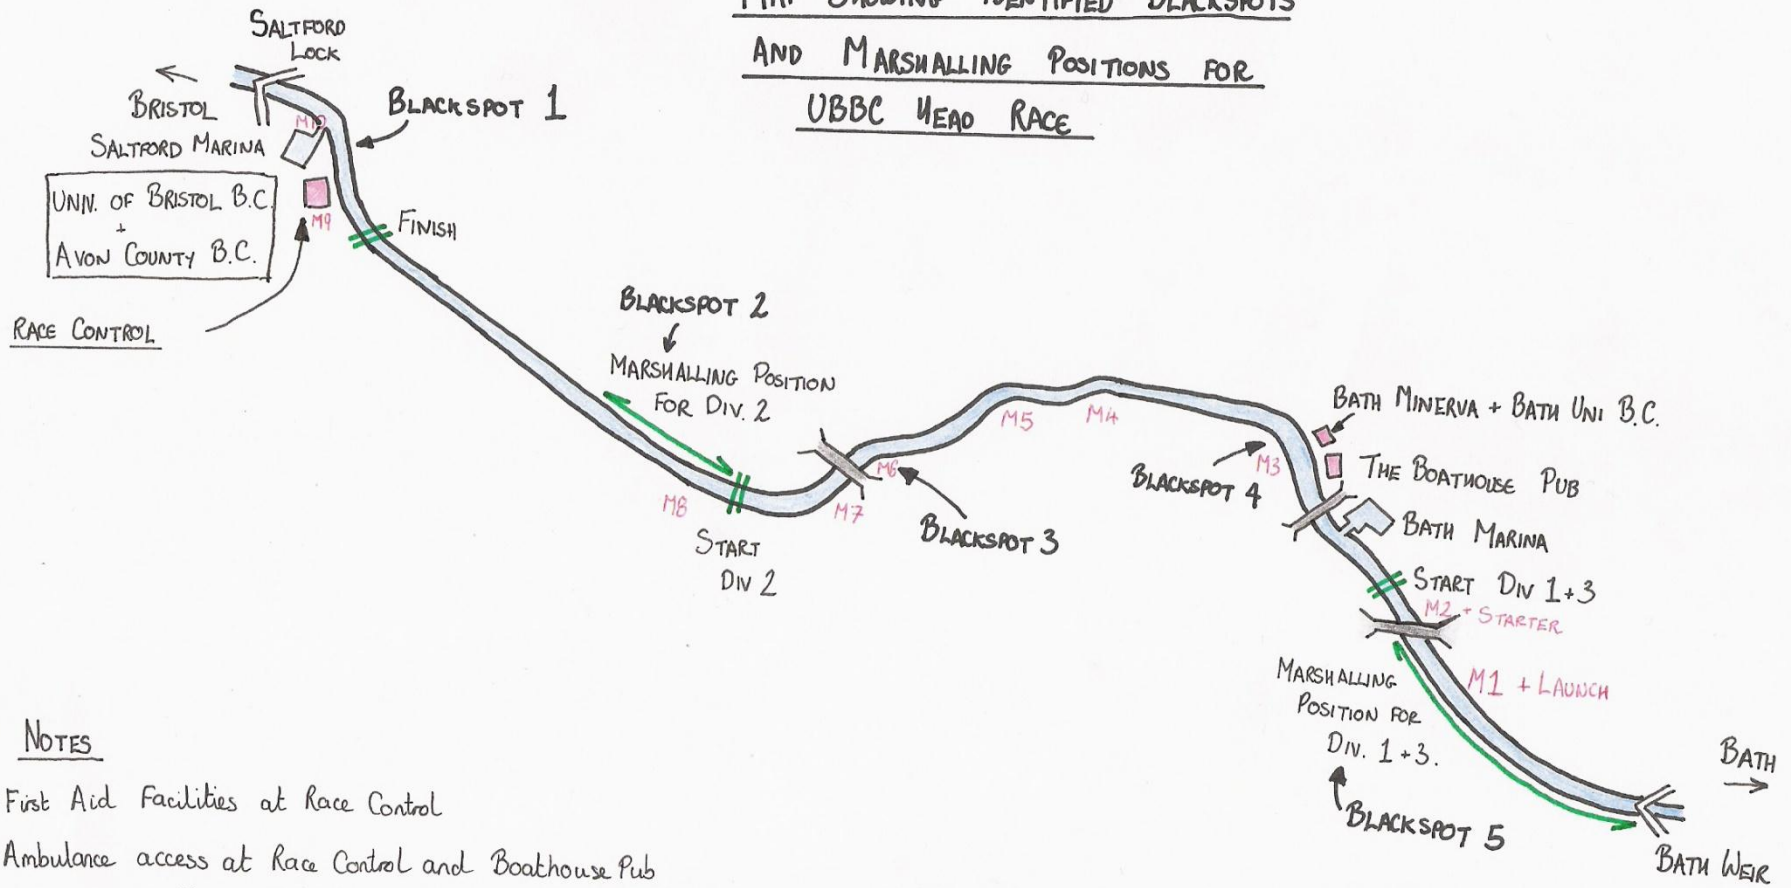 MAP SHOWING IDENTIFIED BLACKSPOTS
AND MARSHALLING POSITIONS FOR
UBBC HEAD RACE
SALTFORD
LOCK
BRISTOL
BLACKSPOT 1
M10
SALTFORD MARINA
UNIV. OF BRISTOL B.C.
+
AVON COUNTY B.C.
M9
FINISH
RACE CONTROL
BLACKSPOT 2
MARSHALLING POSITION
FOR DIV. 2
M8
START
DIV 2
M7
M6
BLACKSPOT 3
M5
M4
BLACKSPOT 4
M3
BATH MINERVA + BATH UNI B.C.
THE BOATHOUSE PUB
BATH MARINA
START DIV 1+3
M2 + STARTER
M1 + LAUNCH
MARSHALLING
POSITION FOR
DIV. 1+3.
BLACKSPOT 5
BATH
BATH WEIR
NOTES
First Aid Facilities at Race Control
Ambulance access at Race Control and Boathouse Pub